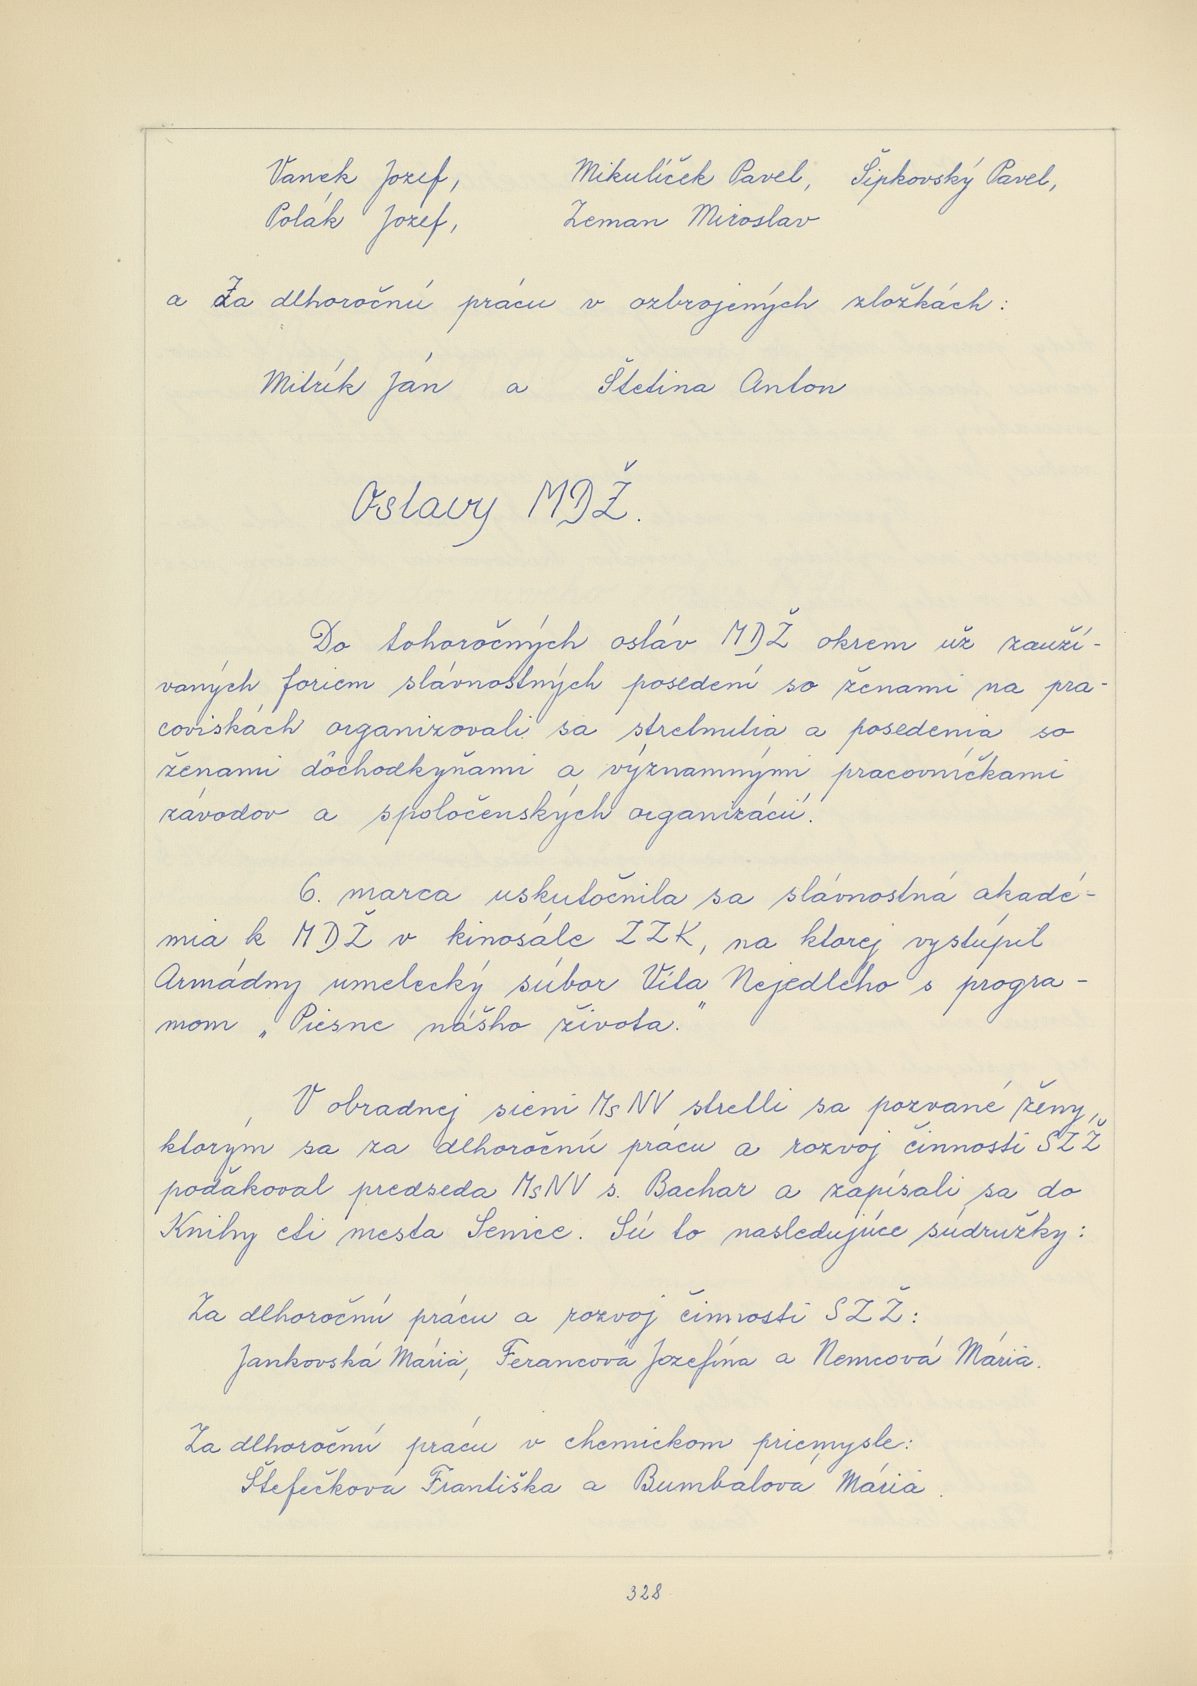 Vanek Jozef, Mikulíček Pavel, Šipkovský Pavel,
Polák Jozef, Zeman Miroslav
a Za dlhoročnú prácu v ozbrojených zložkách:
Mitrík Ján a Štetina Anton
Oslavy MDŽ.
Do tohoročných osláv MDŽ okrem už zauží-
vaných foriem slávnostných posedení so ženami na pra-
coviskách organizovali sa stretnutia a posedenia so
ženami dôchodkyňami a významnými pracovníčkami
závodov a spoločenských organizácií.
6. marca uskutočnila sa slávnostná akadé-
mia k MDŽ v kinosále ZZK, na ktorej vystúpil
Armádny umelecký súbor Víta Nejedlého s progra-
mom „Piesne nášho života."
V obradnej sieni MsNV stretli sa pozvané ženy,
ktorým sa za dlhoročnú prácu a rozvoj činnosti SZŽ
poďakoval predseda MsNV s. Bachar a zapísali sa do
Knihy cti mesta Senice. Sú to nasledujúce súdružky:
Za dlhoročnú prácu a rozvoj činnosti SZŽ:
Jankovská Mária, Ferancová Jozefína a Nemcová Mária.
Za dlhoročnú prácu v chemickom priemysle:
Štefečková Františka a Bumbalová Mária.
328